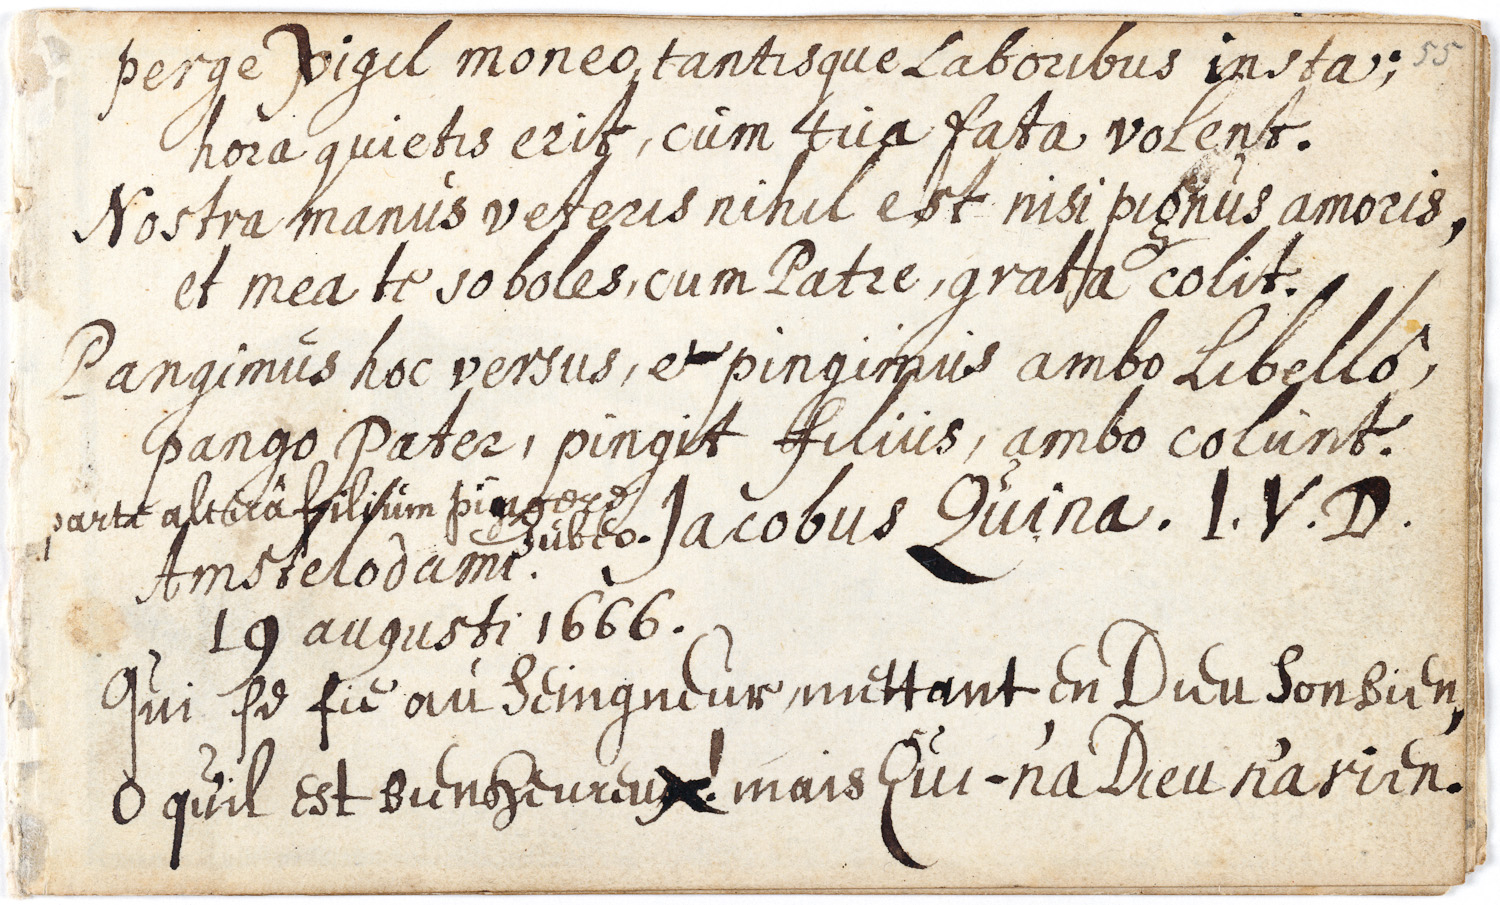 perge vigil moneo, tantisque Laboribus insta; 55
hora quietis erit, cùm tua fata volent.
Nostra manus veteris nihil est nisi pignus amoris,
et mea te soboles, cum Patre, grata colit.
Pangimus hoc versus, et pingimus ambo Libellô,
pango Pater, pingit ffilius, ambo colunt.
parte alterâ filium pingere
jubeo. Jacobus Quina. I. V. D.
Amstelodami.
19 augusti 1666.
Qui se fie au Seingneur, mettant en Dieu son bien,
O qu'il est bienheureux! mais Qui-n'a Dieu n'a rien.